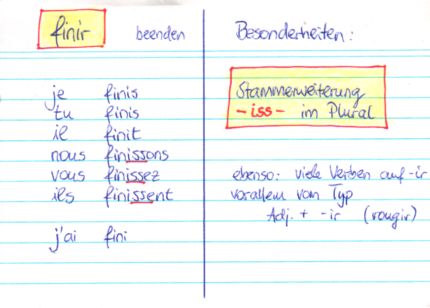 finir beenden
je finis
tu finis
il finit
nous finissons
vous finissez
ils finissent
j'ai fini
Besonderheiten:
Stammerweiterung
-iss- im Plural
ebenso: viele Verben auf -ir
vorallem vom Typ
Adj. + -ir (rougir)